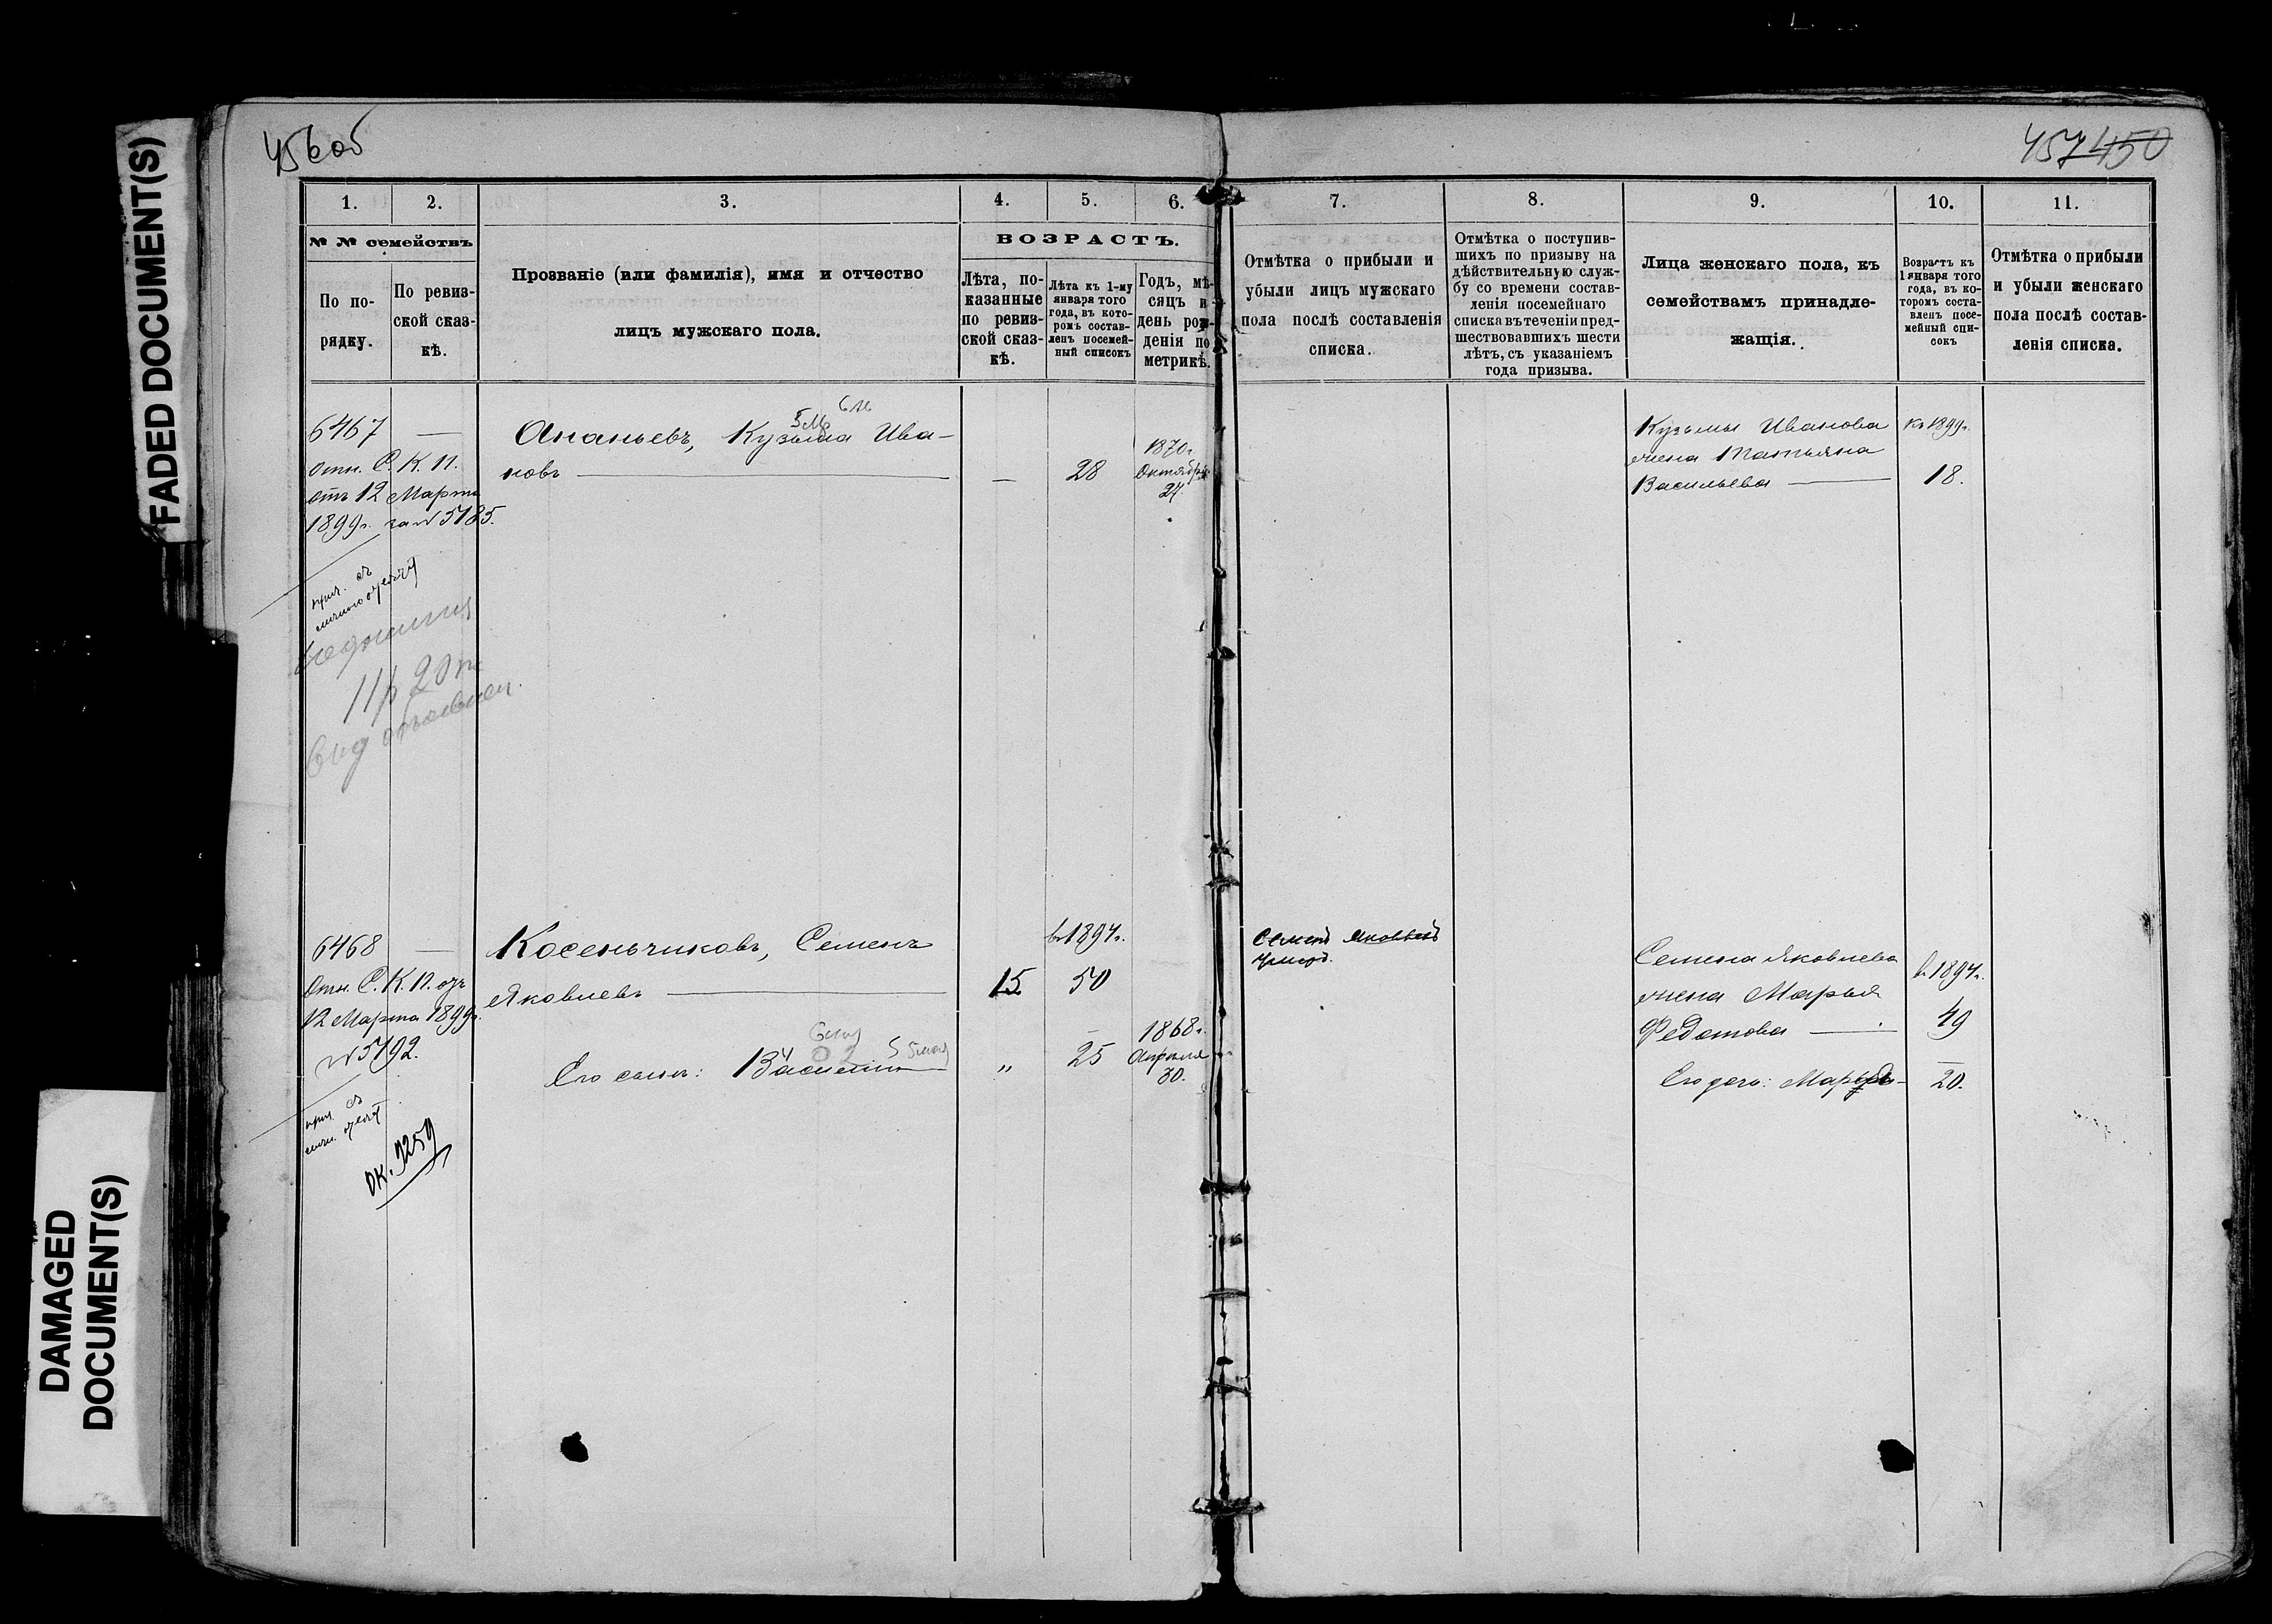 FADED DOCUMENT(S)
DAMAGED
DOCUMENT(S)
456об
457 450
1.
2.
3.
4.
5.
6.
7.
8.
9.
10.
11.
№ № семействъ
По по-
рядку.
По ревиз-
ской сказ-
кѣ.
Прозваніе (или фамилія), имя и отчество
лицъ мужскаго пола.
ВОЗРАСТЪ.
Лѣта, по-
казанные
по ревиз-
ской сказ-
кѣ.
Лѣта къ 1-му
января того
года, въ кото-
ромъ состав-
ленъ посемей-
ный списокъ
Годъ, мѣ-
сяцъ и
день рож-
денія по
метрикѣ.
Отмѣтка о прибыли и
убыли лицъ мужскаго
пола послѣ составленія
списка.
Отмѣтка о поступив-
шихъ по призыву на
дѣйствительную служ-
бу со времени состав-
ленія посемейнаго
списка въ теченіи пред-
шествовавшихъ шести
лѣтъ, съ указаніемъ
года призыва.
Лица женскаго пола, къ
семействамъ принадле-
жащія.
Возрастъ къ
1 января того
года, въ ко-
торомъ соста-
вленъ посе-
мейный спи-
сокъ
Отмѣтка о прибыли
и убыли женскаго
пола послѣ состав-
ленія списка.
6467 —
Отн. С. К. П.
отъ 12 Марта
1899г. за № 5185.
прич. съ
11р 20к
Ананьевъ, Кузьма Ива-
новъ —
—
28
1870г.
Октября
24.
Кузьмы Иванова
жена Татьяна
Васильева —
къ 1899г.
18.
6468 —
Отн. С. К. П. отъ
12 Марта 1899г.
№ 5192.
прич. съ
ок. 9259
Косеньчиковъ, Семенъ
Яковлевъ —
15
въ 1894г.
50
Его сынъ: Василій
„
25
1868г.
Апрѣля
30.
Семенъ Яковлевъ
умеръ.
Семена Яковлева
жена Марья
Федотова —
въ 1894г.
49
Его дочь: Марфа —
20.